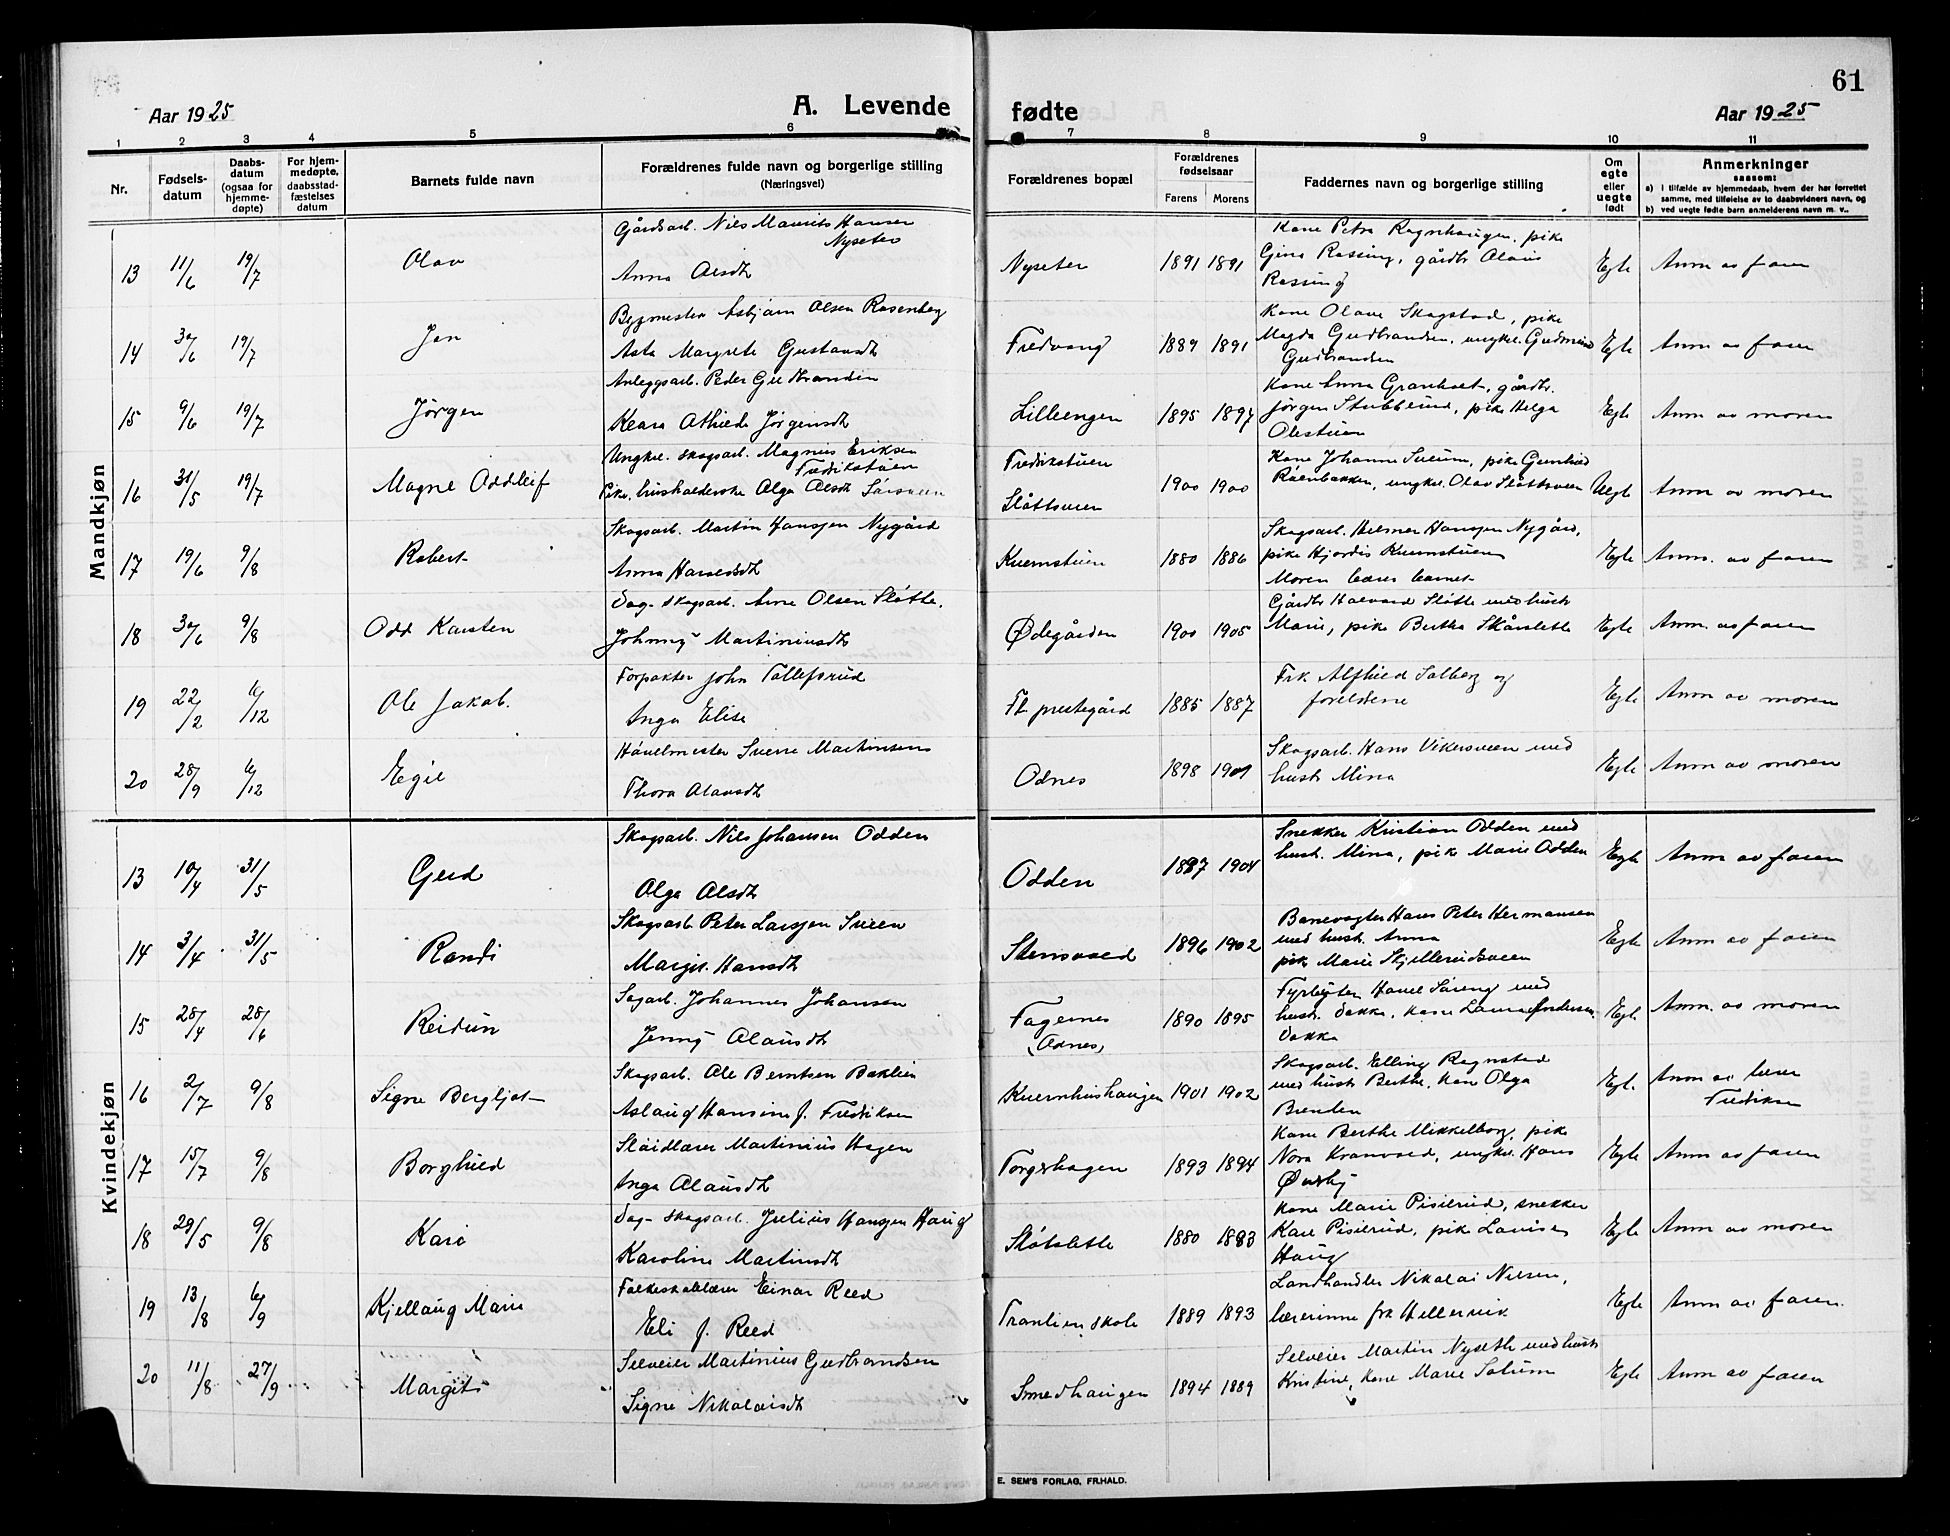 61
Aar 1925
A. Levende
fødte
Aar 1925
1 2 3 4 5 6 7 8 9 10 11
Nr.
Fødsels-
datum
Daabs-
datum
(ogsaa for
hjemme-
døpte)
For hjem-
medøpte,
daabsstad-
fæstelses
datum
Barnets fulde navn
Forældrenes fulde navn og borgerlige stilling
(Næringsvei)
Forældrenes bopæl
Forældrenes
fødselsaar
Farens Morens
Faddernes navn og borgerlige stilling
Om
egte
eller
uegte
født
Anmerkninger
saasom:
a) i tilfælde av hjemmedaab, hvem der har forrettet
samme, med tilføielse av to daabsvidners navn, og
b) ved uegte fødte barn anmelderens navn m. v..
Mandkjøn
13 11/6 19/7 Olav
Gårdsarb. Nils Maurits Hansen
Nyseter
Anna Olsdt
Nyseter 1891 1891
Kone Petra Rognhaugen, pike
Gina Rossing, gårdbr Olaus
Rossing
Egte Anm av faren
14 30/6 19/7 Jan
Bygmester Asbjørn Olsen Rosenberg
Asta Margrete Gustavsdt
Fredvang 1889 1891
Kone Olave Skogstad, pike
Magda Gudbrandsen, ungkl. Gudmund
Gudbrandsen
Egte Anm av faren
15 9/6 19/7 Jørgen
Anleggsarb. Peder Gudbrandsen
Klara Athilde Jørgensdt
Lilleengen 1895 1897
Kone Anna Granholt, gårdbr.
Jørgen Stubblund, pike Helga
Olestuen
Egte Anm av moren
16 31/5 19/7 Magne Oddleif
Ungkl. skogsarb. Magnus Eriksen
Fredikstuen
Pike, husholderske Olga Olsdt Sørsveen
Fredikstuen
Slåttsveen
1900 1900
Kone Johanne Sveum, pike Gunhild
Røenbakken, ungkl. Olav Slåttsveen
Uegte Anm av moren
17 19/6 9/8 Robert
Skogsarb. Martin Hansen Nygård
Anna Haraldsdt
Kvernstuen 1880 1886
Skogsarb. Helmer Hansen Nygård,
pike Hjørdis Kvernstuen
Moren bærer barnet
Egte Anm. av faren
18 30/6 9/8 Odd Karsten
Dag- skogsarb. Arne Olsen Slåtte.
Johnny Martiniusdt
Ødegården 1900 1905
Gårdbr Halvard Slåtte med hustr
Marie, pike Bertha Skårslette
Egte Anm. av faren
19 22/2 6/12 Ole Jakob.
Forpakter John Tollefsrud
Inga Elise
Fl. prestegård 1885 1887
Frk. Alfhild Solberg og
foreldrene
Egte Anm av moren
20 28/9 6/12 Egil
Høvelmester Sverre Martinsen
Thora Olausdt
Odnes 1898 1901
Skogsarb. Hans Vikersveen med
hustr. Mina
Egte Anm av moren
Kvindekjøn
13 10/4 31/5 Gerd
Skogsarb. Nils Johansen Odden
Olga Olsdt
Odden 1897 1904
Snekker Kristian Odden med
hustr. Mina, pik Marie Odden
Egte Anm av faren
14 3/4 31/5 Randi
Skogsarb. Peter Larsen Sveen
Margit Hansdt
Stensvold 1896 1902
Banevogter Hans Peter Hermansen
med hustr. Anna
pik Marie Skjellerudsveen
Egte Anm av faren
15 28/4 28/6 Reidun
Sagarb. Johannes Johansen
Jenny Olausdt
Fagernes
(Odnes)
1890 1895
Fyrbøter Hovel Søreng med
hustr. Dokka, Kone Laura Andersen
Dokka
Egte Anm av moren
16 2/7 9/8 Signe Bergljot
Skogsarb. Ole Berntsen Baklien
Aslaug Hansine f. Frediksen
Kvernhushaugen 1901 1902
Skogsarb. Elling Rognstad
med hustr Berthe, Kone Olga
Brenden
Egte. Anm av lærer
Frediksen
17 15/7 9/8 Borghild
Sløidlærer Martinius Hagen
Inga Olausdt
Torgershagen 1893 1894
Kone Berthe Mikkelborg, pike
Nora Kronvold, ungkl. Hans
Øvsby
Egte Anm av faren
18 29/5 9/8 Kare
Dag- skogsarb. Julius Hansen Haug
Karoline Martinsdt
Slåtslette 1880 1883
Kone Marie Pisilrud, snekker
Kare Pisilrud, pik Lovise
Haug
Egte Anm av moren
19 13/8 6/9 Kjellaug Marie
Folkeskolelærer Einar Reed
Eli f. Reed
Tranlien skole 1889 1893
Landhandler Nikolai Nilsen,
lærerinne frk Hellervik
Egte Anm av faren.
20 11/8 27/9 Margit
Selveier Martinius Gudbrandsen
Signe Nikolaisdt
Smedhaugen 1894 1889
Selveier Martin Nyseth med hustr
Kristine, Kone Marie Solum
Egte Anm av faren
E. SEM'S FORLAG, FR.HALD.